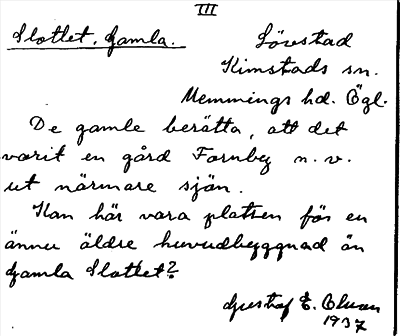 III
Slottet, Gamla. Lövstad
Kimstads sn.
Memmings hd. Ögl.
De gamle berätta, att det
varit en gård Fornby n. v.
ut närmare sjön.
Kan här vara platsen för en
ännu äldre huvudbyggnad än
Gamla Slottet?
Gustaf E. Olman
1937